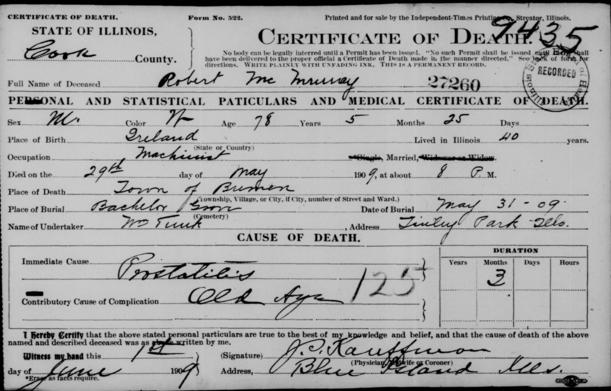 CERTIFICATE OF DEATH. Form No. 522. Printed and for sale by the Independent-Times Printing Co., Streator, Illinois.
STATE OF ILLINOIS, CERTIFICATE OF DEATH. 7435
Cook County.
No body can be legally interred until a Permit has been issued. "No such Permit shall be issued until
have been delivered to the proper official a Certificate of Death made in the manner directed." See back of form for
directions. WRITE PLAINLY WITH UNFADING INK, THIS IS A PERMANENT RECORD.
RECORDED
Full Name of Deceased Robert Mc 27260
PERSONAL AND STATISTICAL PATICULARS AND MEDICAL CERTIFICATE OF DEATH.
Sex M Color W Age 78 Years 5 Months 25 Days
Place of Birth Ireland Lived in Illinois 40 years.
(State or Country)
Occupation Machinist Single, Married, Widower or Widow.
Died on the 29th day of May 1909, at about 8 P. M.
Place of Death Town of Bremen
(Township, Village, or City, if City, number of Street and Ward.)
Place of Burial Bachelor Grov Date of Burial May 31-09
(Cemetery)
Name of Undertaker Wm Funk, Address, Tinley Park Ills.
CAUSE OF DEATH.
DURATION
Years Months Days Hours
Immediate Cause Prostatitis 3
125
Contributory Cause of Complication Old Age
I Hereby Certify that the above stated personal particulars are true to the best of my knowledge and belief, and that the cause of death of the above
named and described deceased was as written by me.
Witness my hand this 1st (Signature) J. C. Kauffman
(Physician, Midwife or Coroner)
day of June 1909 Address, Blue Island Ills.
*Erase as facts require.